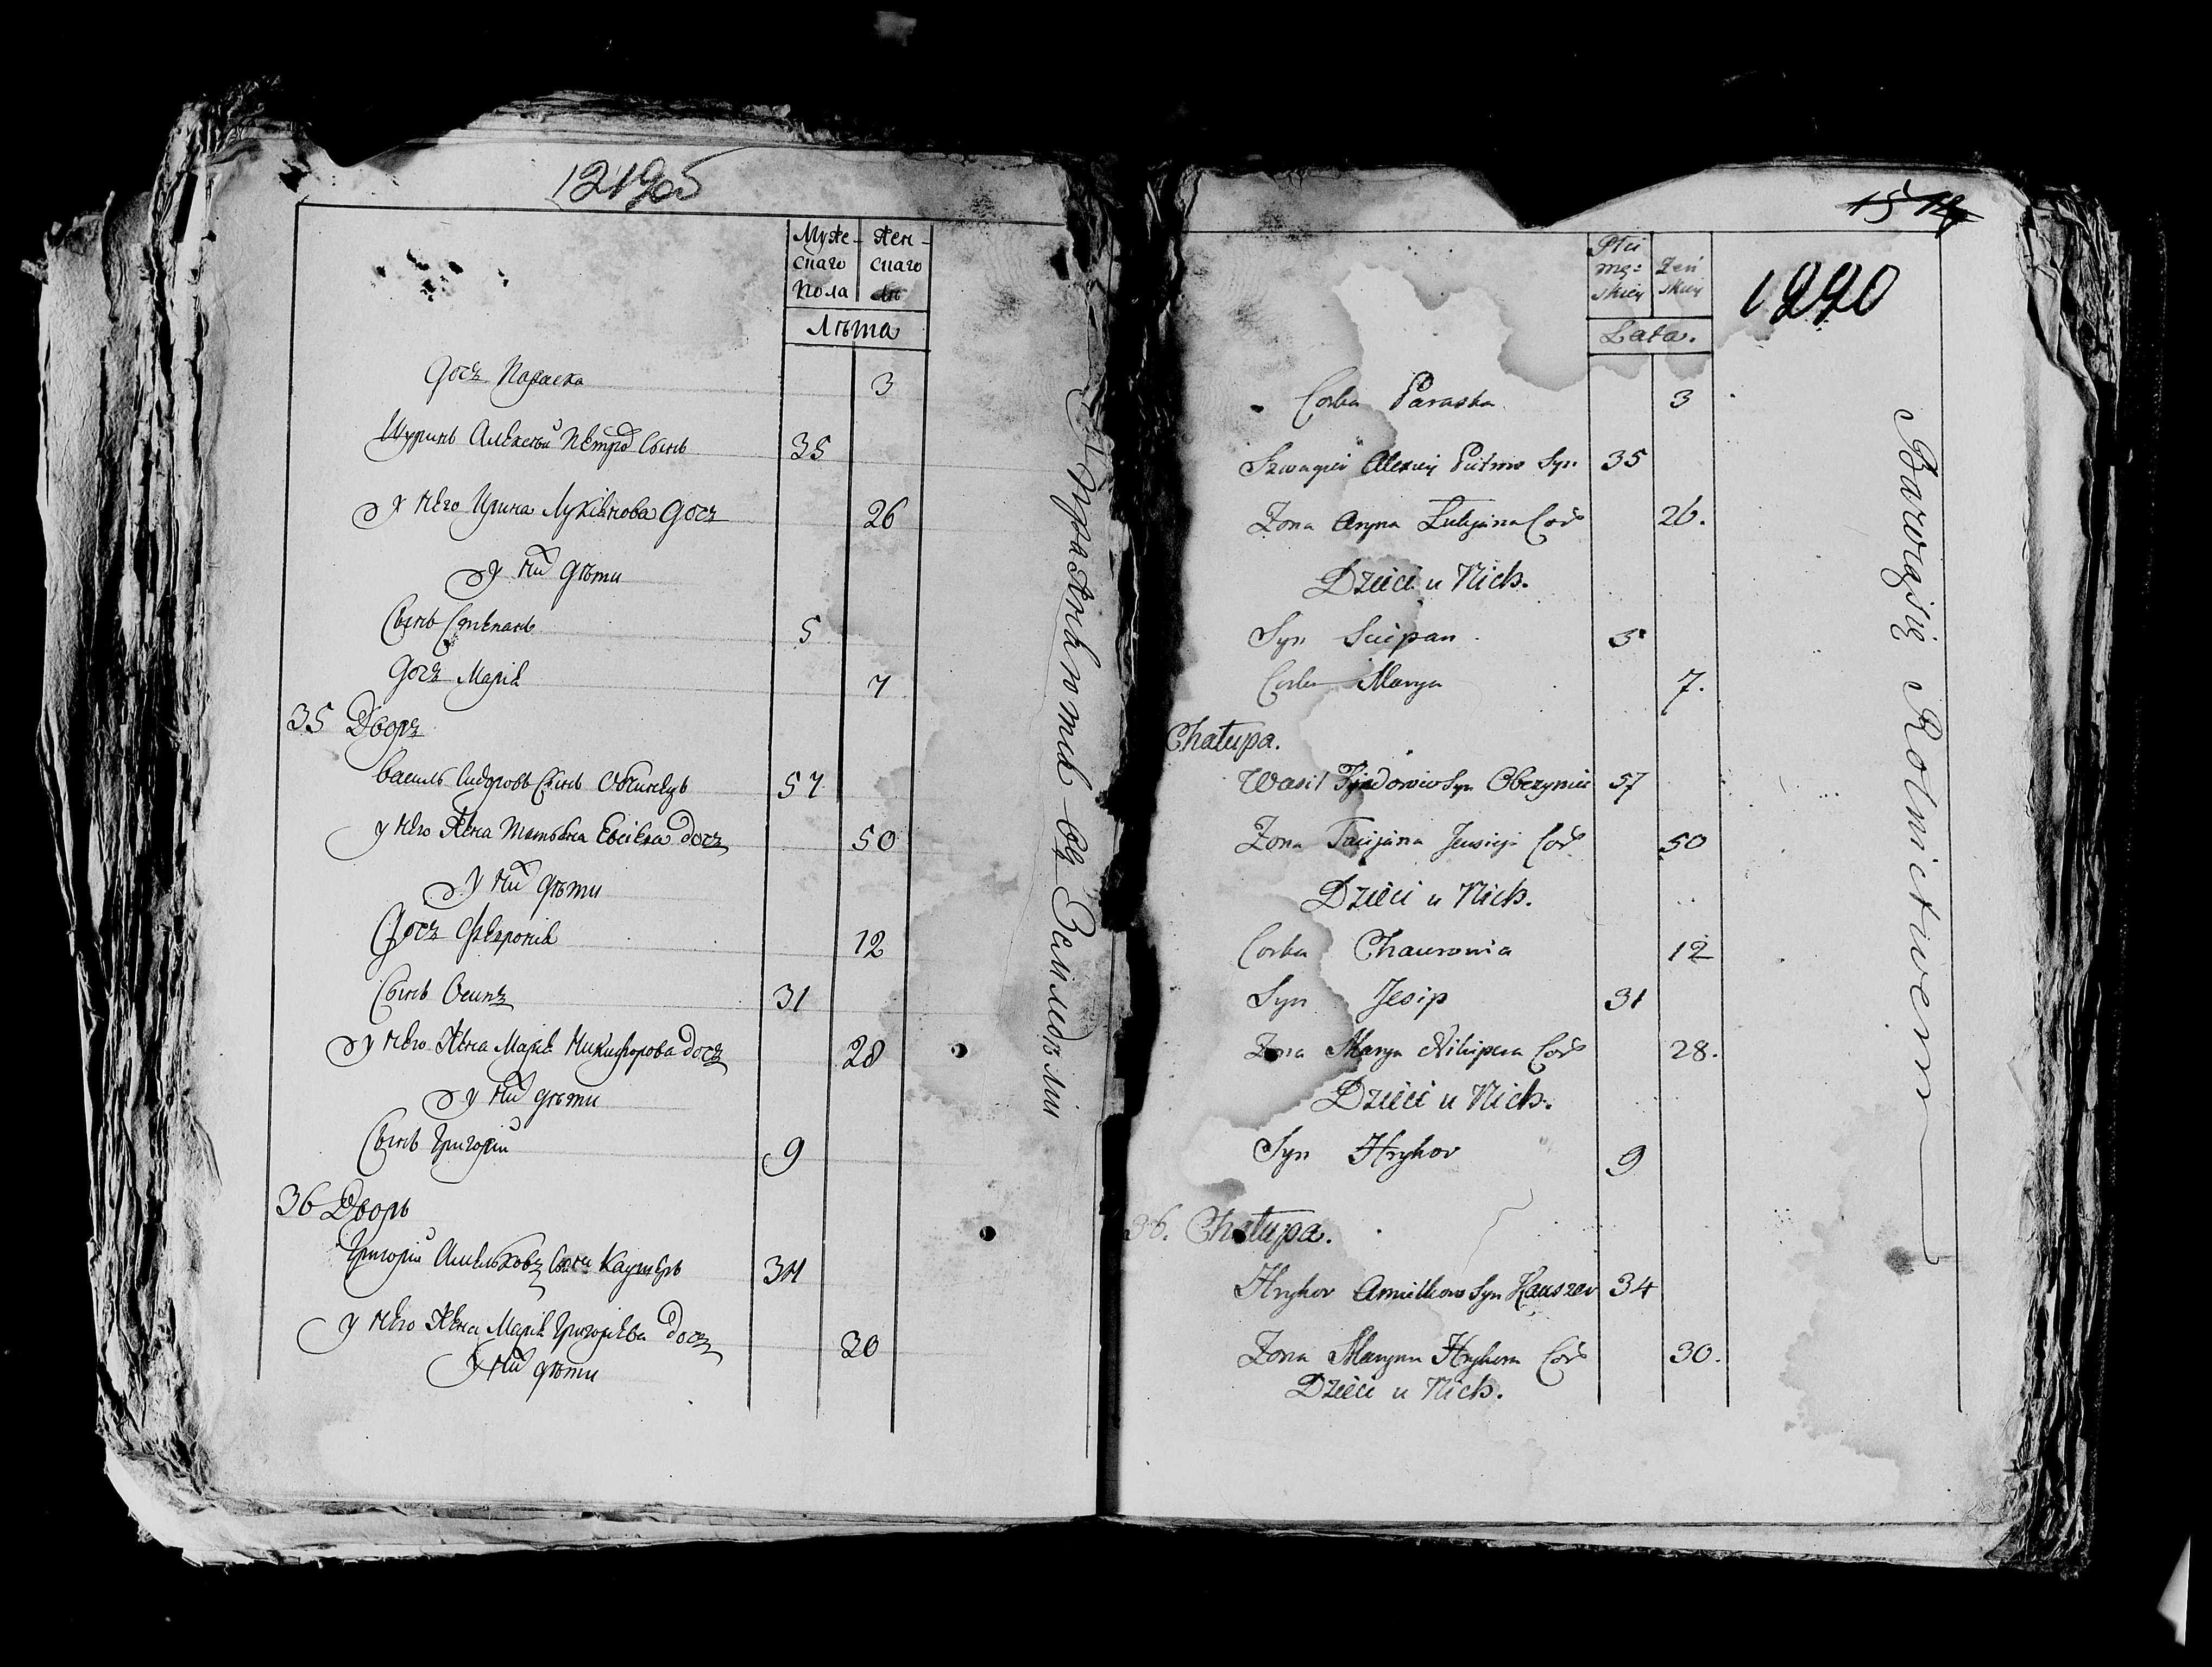 1219об
Муже- Жен-
скаго скаго
пола
Лѣта
Дочъ Параска 3
Шуринъ Алексѣй Петро Сынъ 35
У него Ирина Лукіянова Дочъ 26
У них дѣти
Сынъ Степанъ 5
Дочъ Марія 7
35 Дворъ
Василь Сидоровъ Сынъ 57
У него Жена Татьяна Евсіева дочъ 50
У них дѣти
Дочъ Февронія 12
Сынъ Осипъ 31
У него Жена Марія Никифорова дочъ 28
У них дѣти
Сынъ Григорій 9
36 Дворъ
Григорій Амельковъ Сынъ Каушеръ 34
У него Жена Марія Григорієва дочъ 30
У них дѣти
Упражняются въ Земледѣліи
1220
Płci
mę= Żeń
skiey skiey
Lata.
Corka Paraska 3
Szwagier Alexiey Piotrow Syn 35
Zona Aryna Łukjana Cor 26.
Dzieci u Nich.
Syn Sciepan 5
Corka Marya 7.
Chałupa.
Wasil Syn 57
Zona Tacijana Jewsieja Cor 50
Dzieci u Nich.
Corka Chauronia 12
Syn Jesip 31
Zona Marya Nikipera Cor 28.
Dzieci u Nich.
Syn Hryhor 9
36. Chałupa.
Hryhor Amielkow Syn Kauszer 34
Zona Maryna Hryhora Cor 30.
Dzieci u Nich.
Bawiąsię Rolnictwem